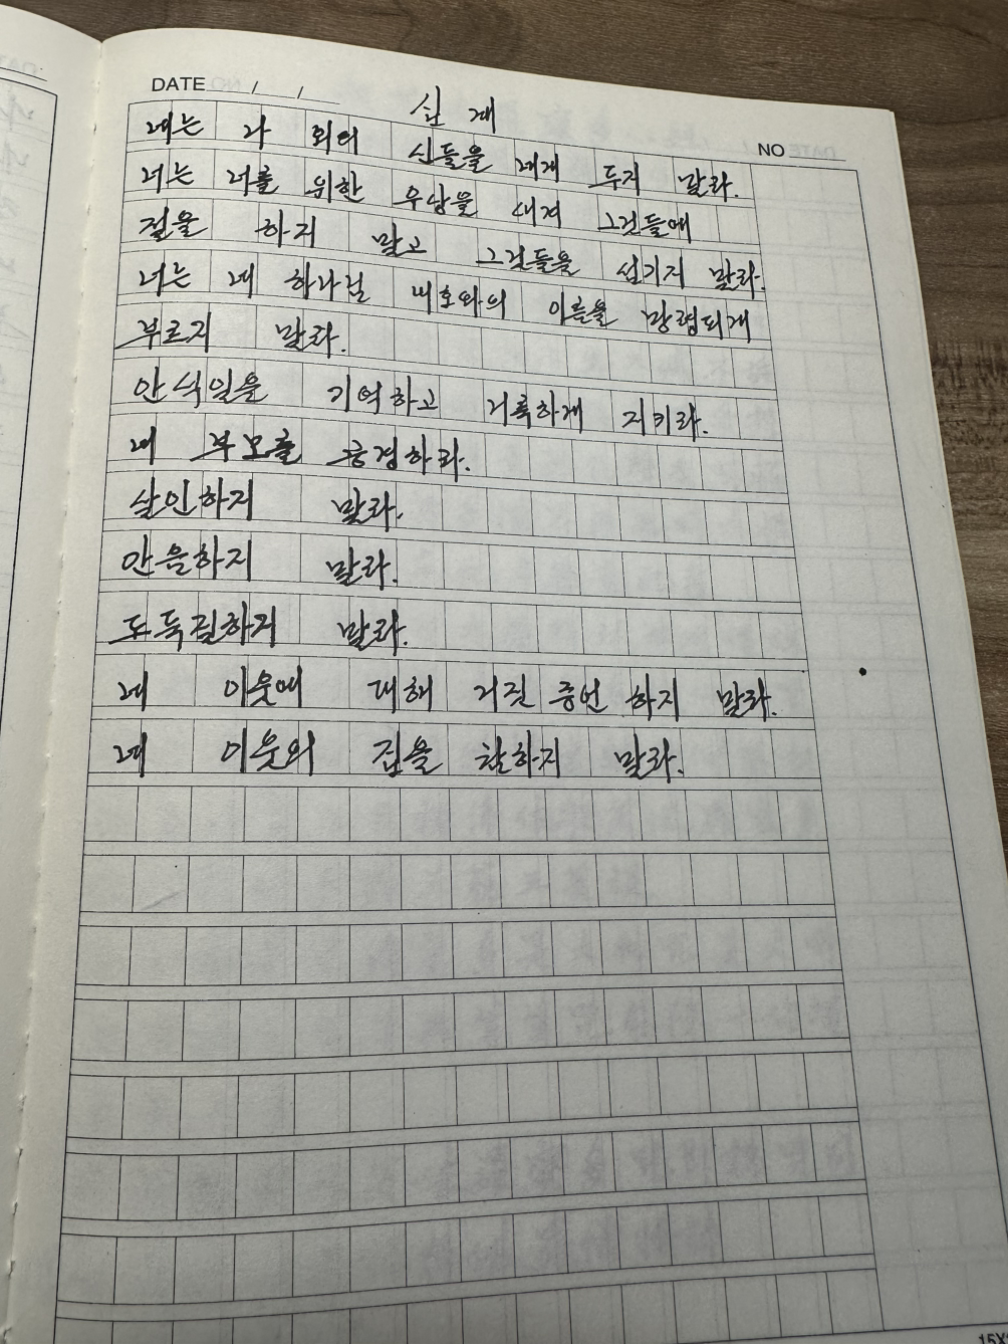 DATE / /
십 계
NO
네는 나 외의 신들을 네게 두지 말라.
너는 너를 위한 우상을 새겨 그것들에
절을 하지 말고 그것들을 섬기지 말라.
너는 네 하나님 여호와의 이름을 망령되게
부르지 말라.
안식일을 기억하고 거룩하게 지키라.
네 부모를 공경하라.
살인하지 말라.
안음하지 말라.
도둑질하지 말라.
네 이웃에 대해 거짓 증언 하지 말라.
네 이웃의 집을 탐하지 말라.